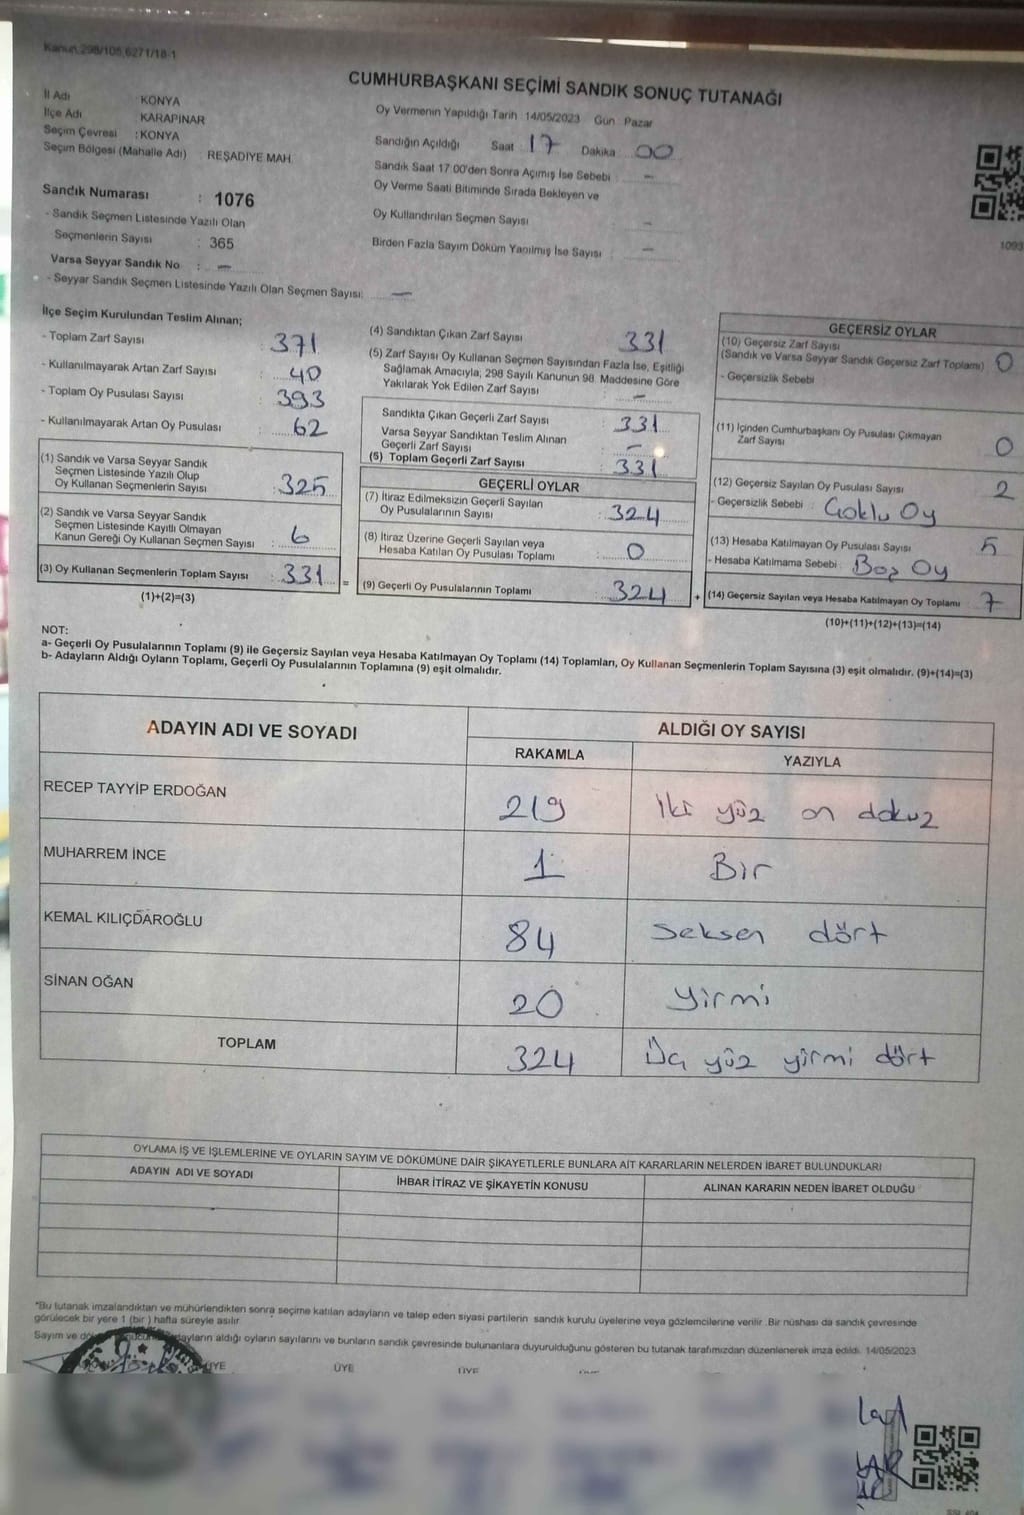 Kanun,298/105,6271/18-1
CUMHURBAŞKANI SEÇİMİ SANDIK SONUÇ TUTANAĞI
İl Adı KONYA
İlçe Adı KARAPINAR
Seçim Çevresi : KONYA
Seçim Bölgesi (Mahalle Adı) : REŞADİYE MAH.
Sandık Numarası : 1076
- Sandık Seçmen Listesinde Yazılı Olan
Seçmenlerin Sayısı : 365
Varsa Seyyar Sandık No : —
- Seyyar Sandık Seçmen Listesinde Yazılı Olan Seçmen Sayısı: —
Oy Vermenin Yapıldığı Tarih 14/05/2023 Gün Pazar
Sandığın Açıldığı Saat 17 Dakika 00
Sandık Saat 17:00'den Sonra Açımış İse Sebebi : —
Oy Verme Saati Bitiminde Sırada Bekleyen ve
Oy Kullandırılan Seçmen Sayısı —
Birden Fazla Sayım Döküm Yapılmış İse Sayısı : —
1093
İlçe Seçim Kurulundan Teslim Alınan;
- Toplam Zarf Sayısı : 371
- Kullanılmayarak Artan Zarf Sayısı : 40
- Toplam Oy Pusulası Sayısı : 393
- Kullanılmayarak Artan Oy Pusulası : 62
(1) Sandık ve Varsa Seyyar Sandık
Seçmen Listesinde Yazılı Olup
Oy Kullanan Seçmenlerin Sayısı : 325
(2) Sandık ve Varsa Seyyar Sandık
Seçmen Listesinde Kayıtlı Olmayan
Kanun Gereği Oy Kullanan Seçmen Sayısı : 6
(3) Oy Kullanan Seçmenlerin Toplam Sayısı : 331 =
(1)+(2)=(3)
(4) Sandıktan Çıkan Zarf Sayısı 331
(5) Zarf Sayısı Oy Kullanan Seçmen Sayısından Fazla İse, Eşitliği
Sağlamak Amacıyla, 298 Sayılı Kanunun 98. Maddesine Göre
Yakılarak Yok Edilen Zarf Sayısı : —
Sandıkta Çıkan Geçerli Zarf Sayısı : 331
Varsa Seyyar Sandıktan Teslim Alınan
Geçerli Zarf Sayısı : —
(6) Toplam Geçerli Zarf Sayısı : 331
GEÇERLİ OYLAR
(7) İtiraz Edilmeksizin Geçerli Sayılan
Oy Pusulalarının Sayısı : 324
(8) İtiraz Üzerine Geçerli Sayılan veya
Hesaba Katılan Oy Pusulası Toplamı : 0
(9) Geçerli Oy Pusulalarının Toplamı : 324 +
GEÇERSİZ OYLAR
(10) Geçersiz Zarf Sayısı
(Sandık ve Varsa Seyyar Sandık Geçersiz Zarf Toplamı) : 0
- Geçersizlik Sebebi
(11) İçinden Cumhurbaşkanı Oy Pusulası Çıkmayan
Zarf Sayısı 0
(12) Geçersiz Sayılan Oy Pusulası Sayısı : 2
- Geçersizlik Sebebi : Çoklu Oy
(13) Hesaba Katılmayan Oy Pusulası Sayısı : 5
- Hesaba Katılmama Sebebi : Boş Oy
(14) Geçersiz Sayılan veya Hesaba Katılmayan Oy Toplamı : 7
(10)+(11)+(12)+(13)=(14)
NOT:
a- Geçerli Oy Pusulalarının Toplamı (9) ile Geçersiz Sayılan veya Hesaba Katılmayan Oy Toplamı (14) Toplamları, Oy Kullanan Seçmenlerin Toplam Sayısına (3) eşit olmalıdır. (9)+(14)=(3)
b- Adayların Aldığı Oyların Toplamı, Geçerli Oy Pusulalarının Toplamına (9) eşit olmalıdır.
ADAYIN ADI VE SOYADI ALDIĞI OY SAYISI
RAKAMLA YAZIYLA
RECEP TAYYİP ERDOĞAN 219 iki yüz on dokuz
MUHARREM İNCE 1 Bir
KEMAL KILIÇDAROĞLU 84 Seksen dört
SİNAN OĞAN 20 Yirmi
TOPLAM 324 Üç yüz yirmi dört
OYLAMA İŞ VE İŞLEMLERİNE VE OYLARIN SAYIM VE DÖKÜMÜNE DAİR ŞİKAYETLERLE BUNLARA AİT KARARLARIN NELERDEN İBARET BULUNDUKLARI
ADAYIN ADI VE SOYADI İHBAR İTİRAZ VE ŞİKAYETİN KONUSU ALINAN KARARIN NEDEN İBARET OLDUĞU
*Bu tutanak imzalandıktan ve mühürlendikten sonra seçime katılan adayların ve talep eden siyasi partilerin sandık kurulu üyelerine veya gözlemcilerine verilir. Bir nüshası da sandık çevresinde
görülecek bir yere 1 (bir ) hafta süreyle asılır.
Sayım ve adayların aldığı oyların sayılarını ve bunların sandık çevresinde bulunanlara duyurulduğunu gösteren bu tutanak tarafımızdan düzenlenerek imza edildi. 14/05/2023
ÜYE ÜYE ÜYE